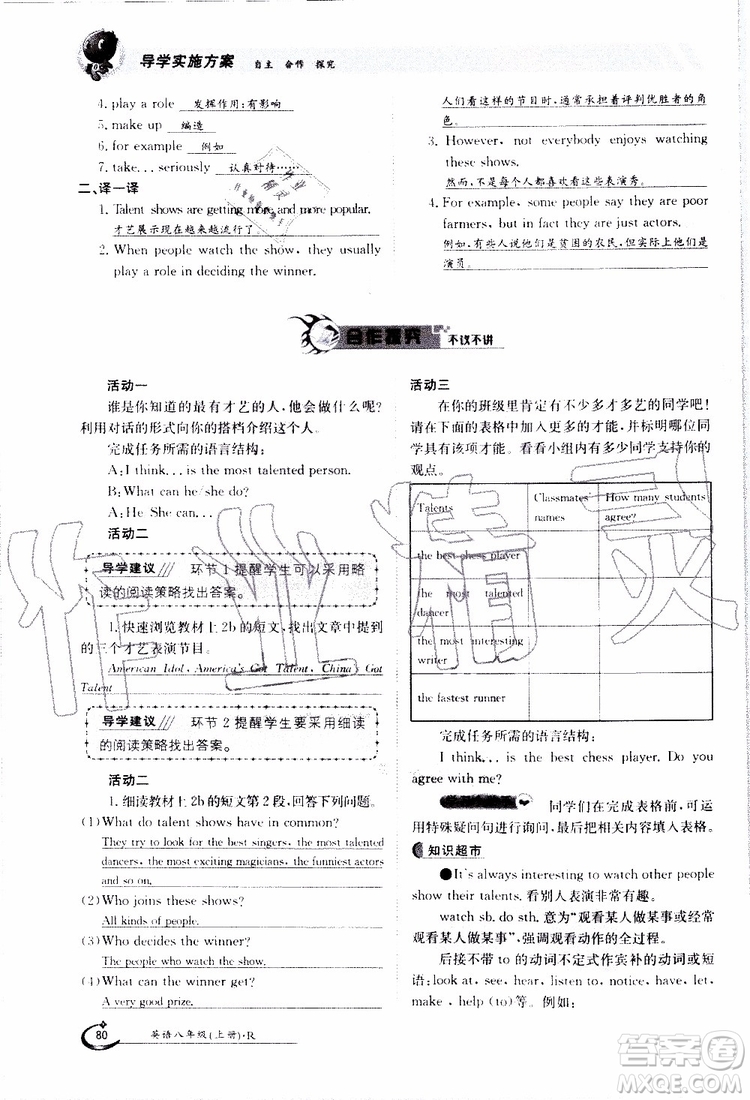 导学实施方案 自主 合作 探究
4. play a role 发挥作用;有影响
5. make up 编造
6. for example 例如
7. take... seriously 认真对待……
二、译一译
1. Talent shows are getting more and more popular.
才艺展示现在越来越流行了。
2. When people watch the show, they usually
play a role in deciding the winner.
人们看这样的节目时,通常会有着评判优胜者的角
色。
3. However, not everybody enjoys watching
these shows.
然而,不是每个人都喜欢看这些表演秀。
4. For example, some people say they are poor
farmers, but in fact they are just actors.
例如,有些人说他们是贫困的农民,但实际上他们是
演员。
合作探究 不议不讲
活动一
谁是你知道的最有才艺的人,他会做什么呢?
利用对话的形式向你的搭档介绍这个人。
完成任务所需的语言结构:
A: I think... is the most talented person.
B: What can he/she do?
A: He/She can...
活动二
导学建议 环节1提醒学生可以采用略
读的阅读策略找出答案。
1. 快速浏览教材上2b的短文,找出文章中提到
的三个才艺表演节目。
American Idol, America's Got Talent, China's Got
Talent
导学建议 环节2提醒学生要采用细读
的阅读策略找出答案。
活动二
1. 细读教材上2b的短文第2段,回答下列问题。
(1)What do talent shows have in common?
They try to look for the best singers, the most talented
dancers, the most exciting magicians, the funniest actors
and so on.
(2)Who joins these shows?
All kinds of people.
(3)Who decides the winner?
The people who watch the show.
(4)What can the winner get?
A very good prize.
活动三
在你的班级里肯定有不少多才多艺的同学吧!
请在下面的表格中加入更多的才能,并标明哪位同
学具有该项才能。看看小组内有多少同学支持你的
观点。
Talents Classmates' names How many students agree?
the best chess player
the most talented dancer
the most interesting writer
the fastest runner
完成任务所需的语言结构:
I think... is the best chess player. Do you
agree with me?
同学们在完成表格前,可运
用特殊疑问句进行询问,最后将内容填入表格。
知识超市
●It's always interesting to watch other people
show their talents. 看别人表演才能总是很有趣。
watch sb. do sth. 意为“观看某人做某事或经常
观看某人做某事”,强调观看动作的全过程。
后接不带 to 的动词不定式作宾补的动词或短
语:look at, see, hear, listen to, notice, have, let,
make, help (to)等。例如:
80 英语八年级(上册)·R
作业精灵
答案圈
MXQE.COM